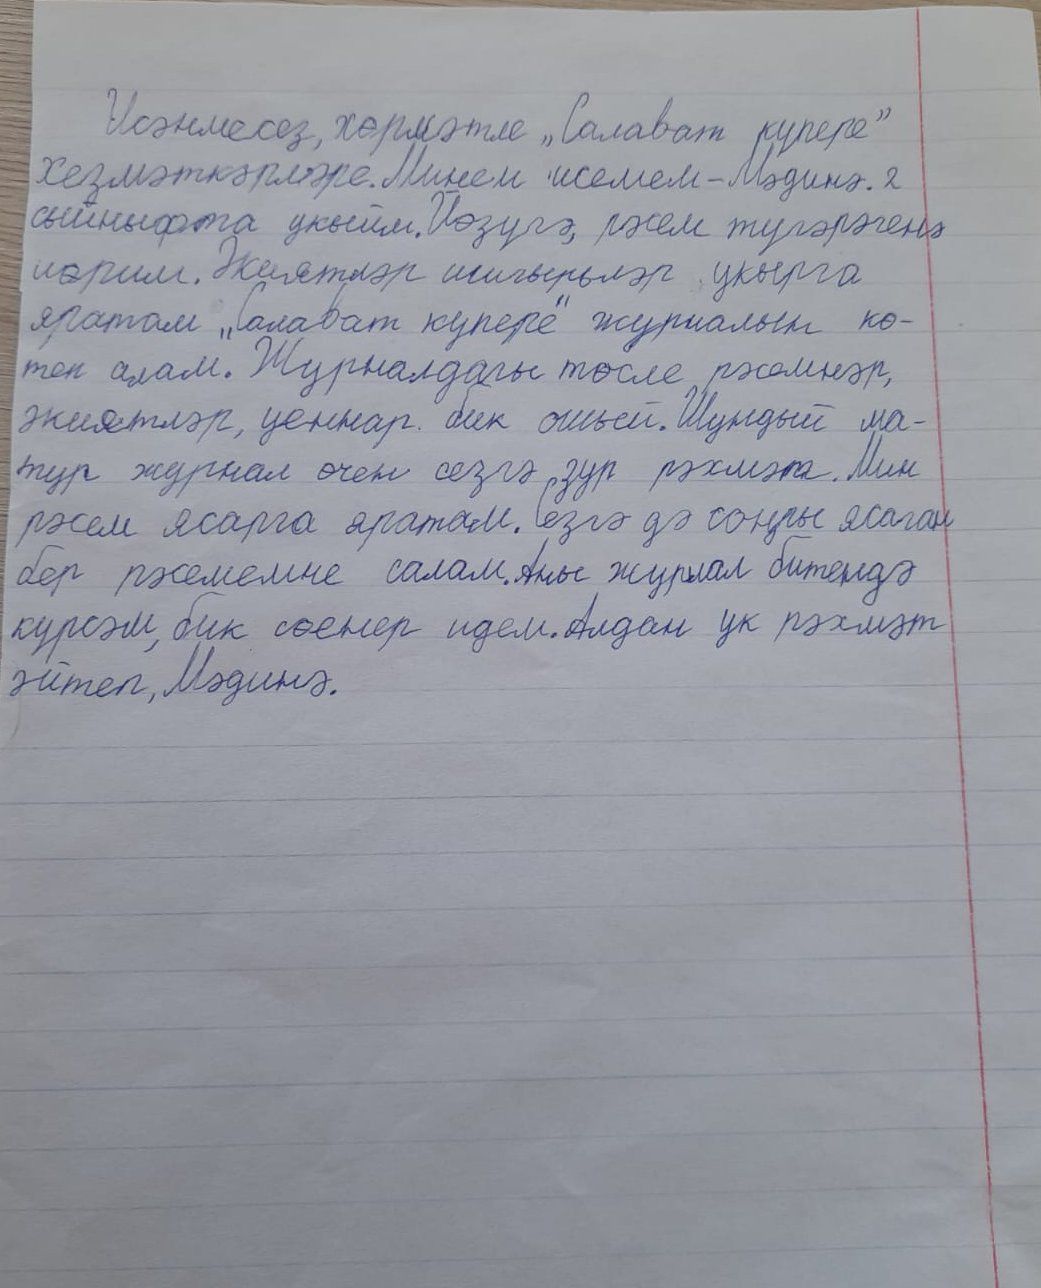 Исәнмесез, хөрмәтле „Салават күпере”
хезмәткәрләре. Минем исемем – Мәдинә. 2
сыйныфта укыйм. Йөзүгә, рәсем түгәрәгенә
йөрим. Әкиятләр шигырьләр укырга
яратам „Салават күпере” журналын кө-
теп алам. Журналдагы төсле рәсемнәр,
әкиятләр, уеннар бик ошый. Шундый ма-
тур журнал өчен сезгә зур рәхмәт. Мин
рәсем ясарга яратам. Сезгә дә соңгы ясаган
бер рәсемемне салам. Аны журнал битендә
күрсәм, бик сөенер идем. Алдан ук рәхмәт
әйтеп, Мәдинә.